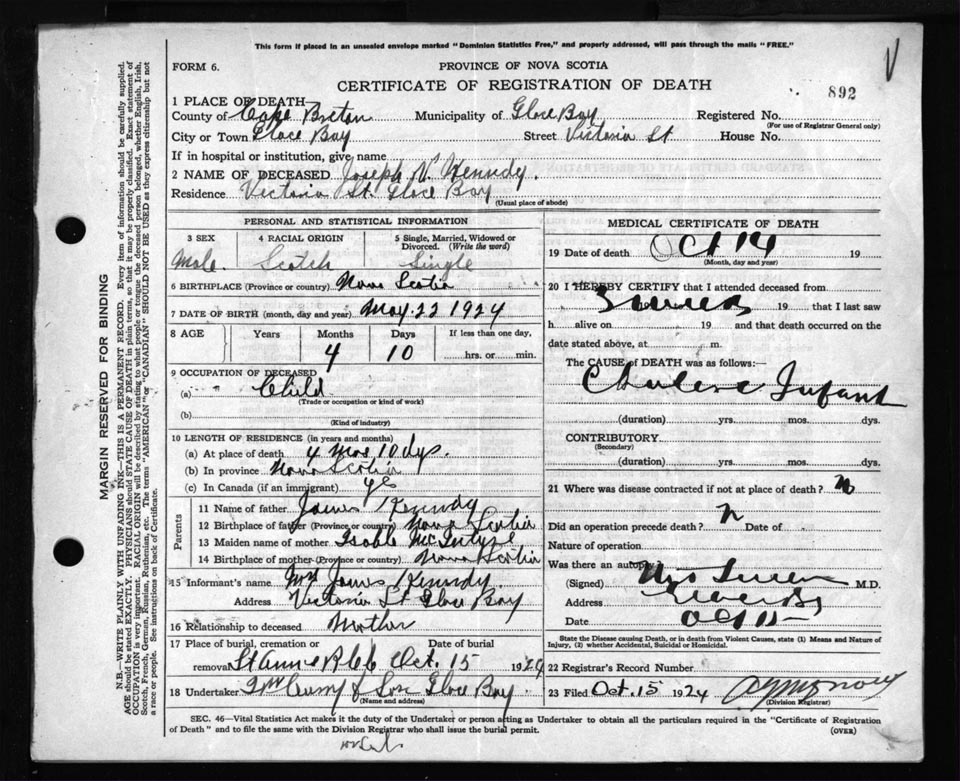 This form if placed in an unsealed envelope marked "Dominion Statistics Free," and properly addressed, will pass through the mails "FREE."
FORM 6.
PROVINCE OF NOVA SCOTIA
CERTIFICATE OF REGISTRATION OF DEATH
892
1 PLACE OF DEATH
County of Cape Breton Municipality of Glace Bay Registered No.
(For use of Registrar General only)
City or Town Glace Bay Street Victoria St House No.
If in hospital or institution, give name
2 NAME OF DECEASED Joseph Kennedy.
Residence Victoria St. Glace Bay
(Usual place of abode)
PERSONAL AND STATISTICAL INFORMATION
3 SEX 4 RACIAL ORIGIN 5 Single, Married, Widowed or Divorced. (Write the word)
Male. Scotch Single
6 BIRTHPLACE (Province or country) Nova Scotia
7 DATE OF BIRTH (month, day and year) May. 22 1924
8 AGE Years Months Days If less than one day,
4 10 hrs. or min.
9 OCCUPATION OF DECEASED
(a) Child
(Trade or occupation or kind of work)
(b)
(Kind of industry)
10 LENGTH OF RESIDENCE (in years and months)
(a) At place of death 4 Mos, 10 dys.
(b) In province Nova Scotia
(c) In Canada (if an immigrant) yes
Parents
11 Name of father James Kennedy
12 Birthplace of father (Province or country) Nova Scotia
13 Maiden name of mother Isable McIntyre
14 Birthplace of mother (Province or country) Nova Scotia
15 Informant's name Mrs James Kennedy.
Address Victoria St Glace Bay
16 Relationship to deceased Mother
17 Place of burial, cremation or removal Date of burial
St Anne Oct. 15 1924
18 Undertaker & Son Glace Bay
(Name and address)
MEDICAL CERTIFICATE OF DEATH
19 Date of death Oct 14 19
(Month, day and year)
20 I HEREBY CERTIFY that I attended deceased from
19 that I last saw
h alive on 19 and that death occurred on the
date stated above, at m.
The CAUSE of DEATH was as follows:
Infant
(duration) yrs. mos. dys.
CONTRIBUTORY
(Secondary)
(duration) yrs. mos. dys.
21 Where was disease contracted if not at place of death?
Did an operation precede death? Date of
Nature of operation
Was there an autopsy
(Signed) M.D.
Address
Date Oct 15
State the Disease causing Death, or in death from Violent Causes, state (1) Means and Nature of Injury, (2) whether Accidental, Suicidal or Homicidal.
22 Registrar's Record Number
23 Filed Oct. 15 1924
(Division Registrar)
SEC. 46—Vital Statistics Act makes it the duty of the Undertaker or person acting as Undertaker to obtain all the particulars required in the "Certificate of Registration
of Death" and to file the same with the Division Registrar who shall issue the burial permit. (OVER)
MARGIN RESERVED FOR BINDING
N.B.—WRITE PLAINLY WITH UNFADING INK—THIS IS A PERMANENT RECORD. Every item of information should be carefully supplied.
AGE should be stated EXACTLY. PHYSICIANS should STATE CAUSE OF DEATH in plain terms, so that it may be properly classified. Exact statement of
OCCUPATION is very important. RACIAL ORIGIN will be described by stating to what people or tongue the deceased person belonged, whether English, Irish,
Scotch, French, German, Russian, Ruthenian, etc. The terms "AMERICAN" or "CANADIAN" SHOULD NOT BE USED as they express citizenship but not
a race or people. See instructions on back of Certificate.